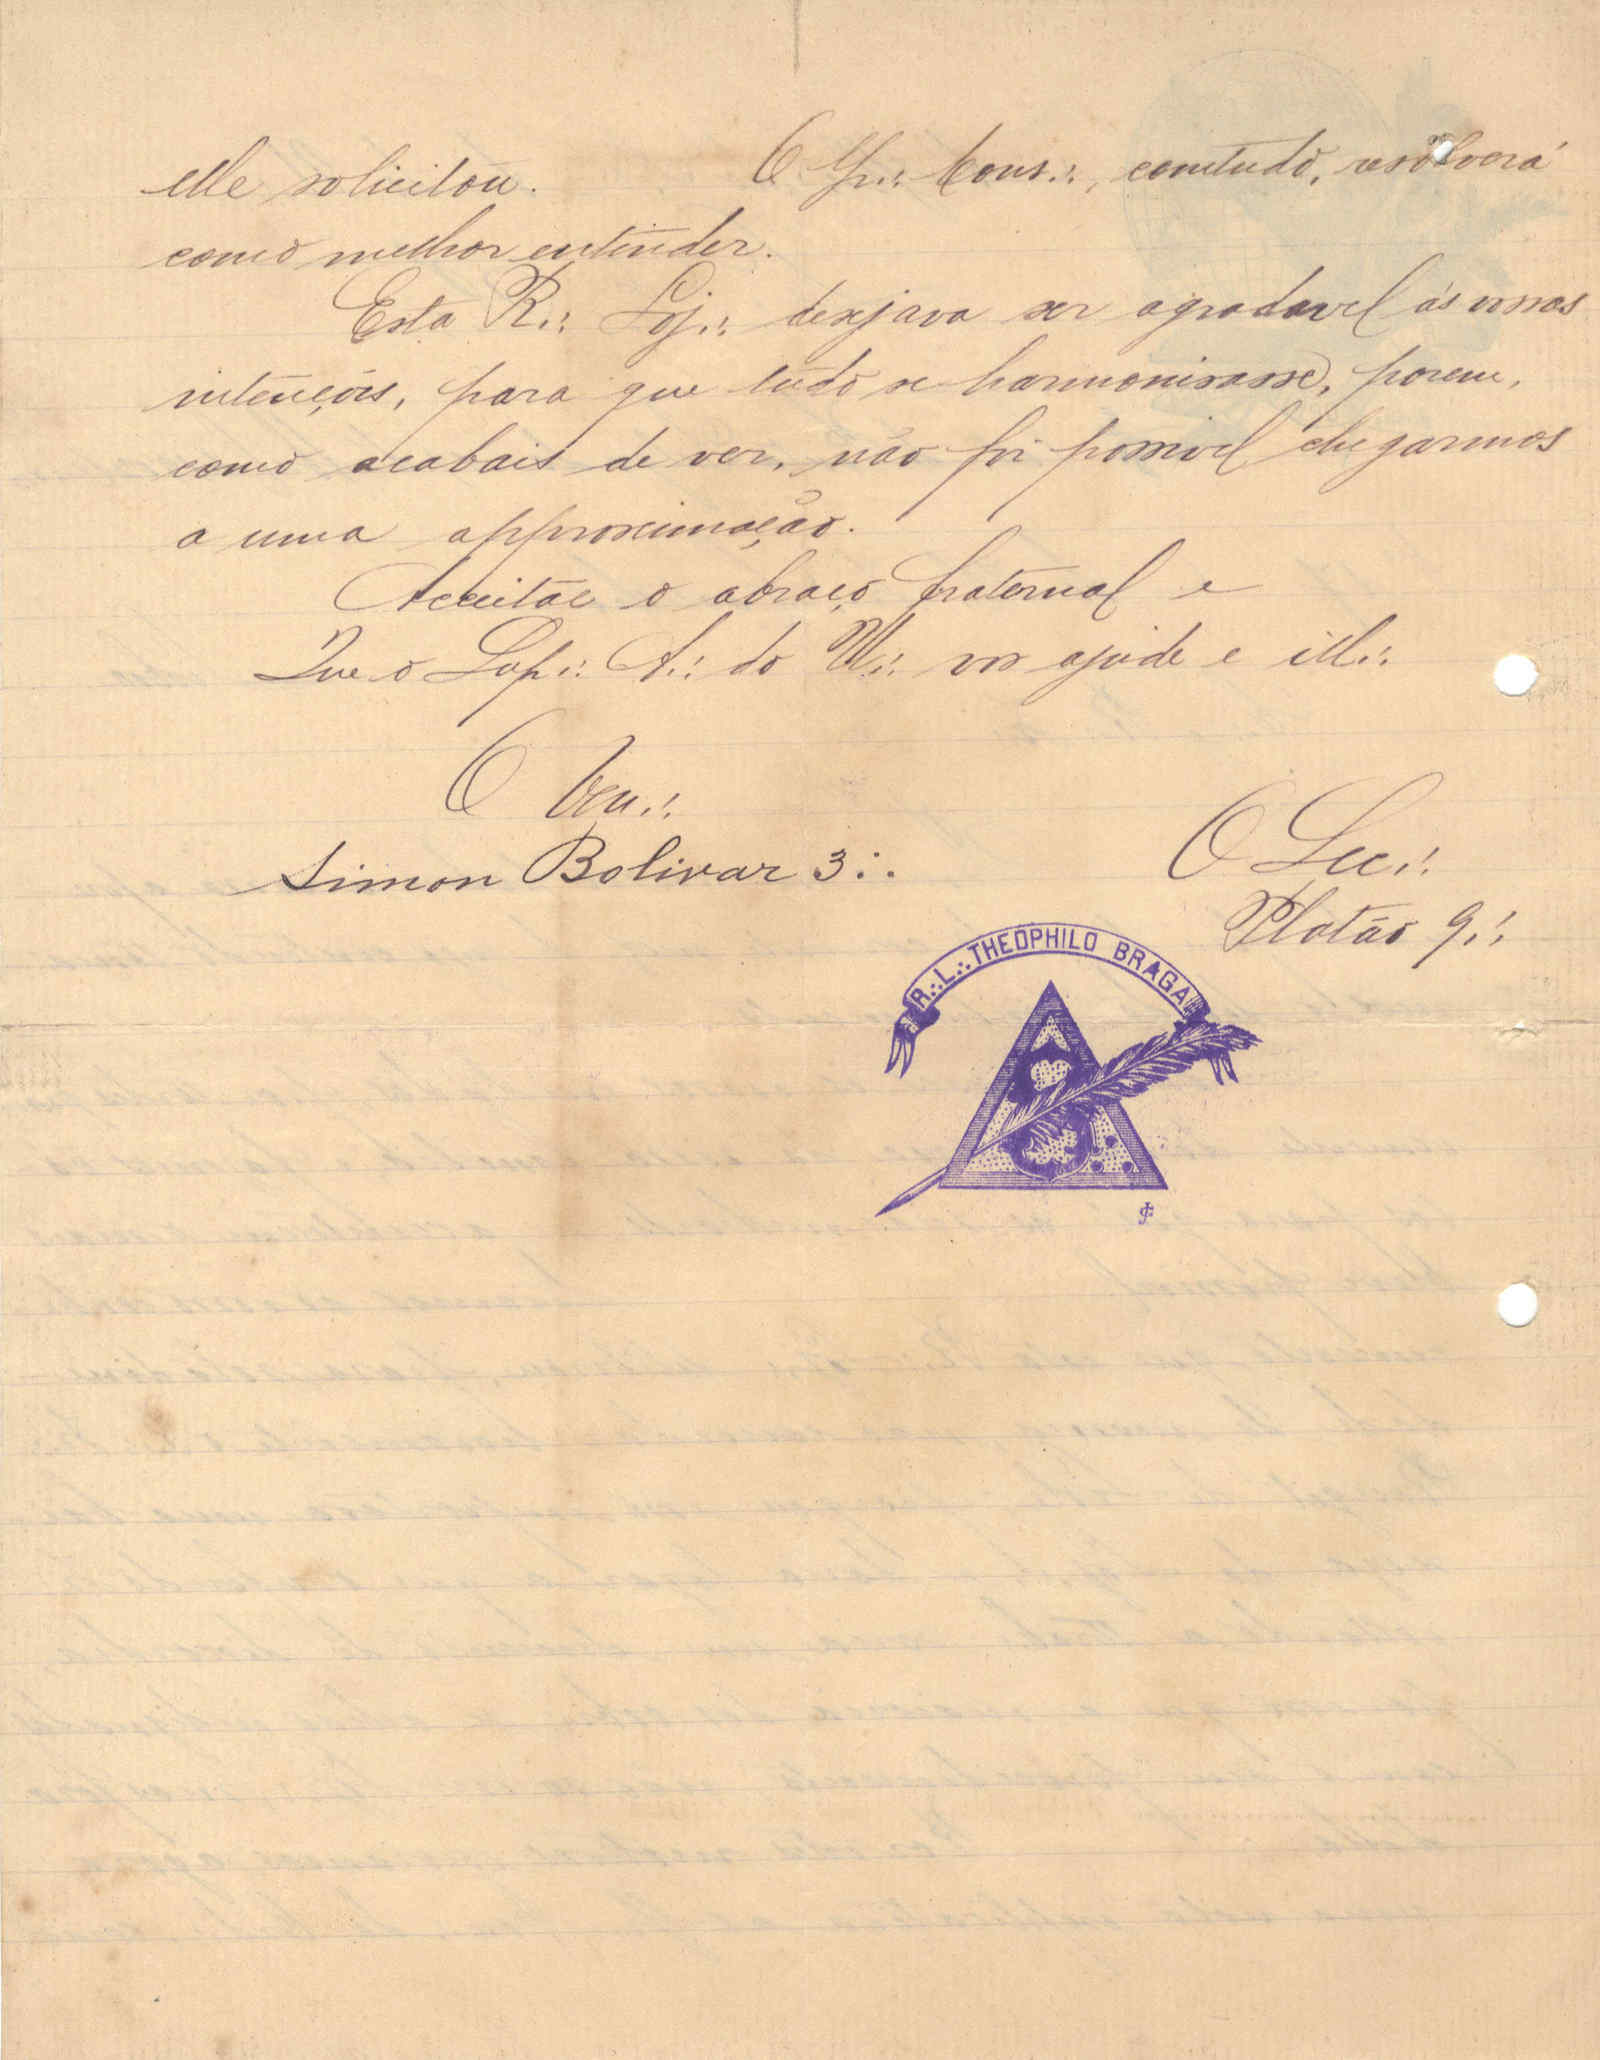 elle solicitou. O Gr∴ Cons∴, comtudo, resolverá
como melhor entender.
Esta R∴ Loj∴ desejava ser agradavel ás vossas
intenções, para que tudo se harmonisasse, porem,
como acabais de ver, não foi possivel chegarmos
a uma approximação.
Acceitae o abraço fraternal e
Que o Sup∴ A∴ do U∴ vos ajude e ill∴
O Ven∴
Simon Bolivar 3∴
O Sec∴
Platão 9∴
R∴L∴ THEOPHILO BRAGA